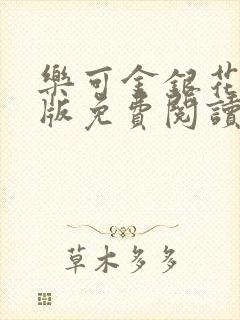 樂可金銀花
版免費閱讀
草木多多